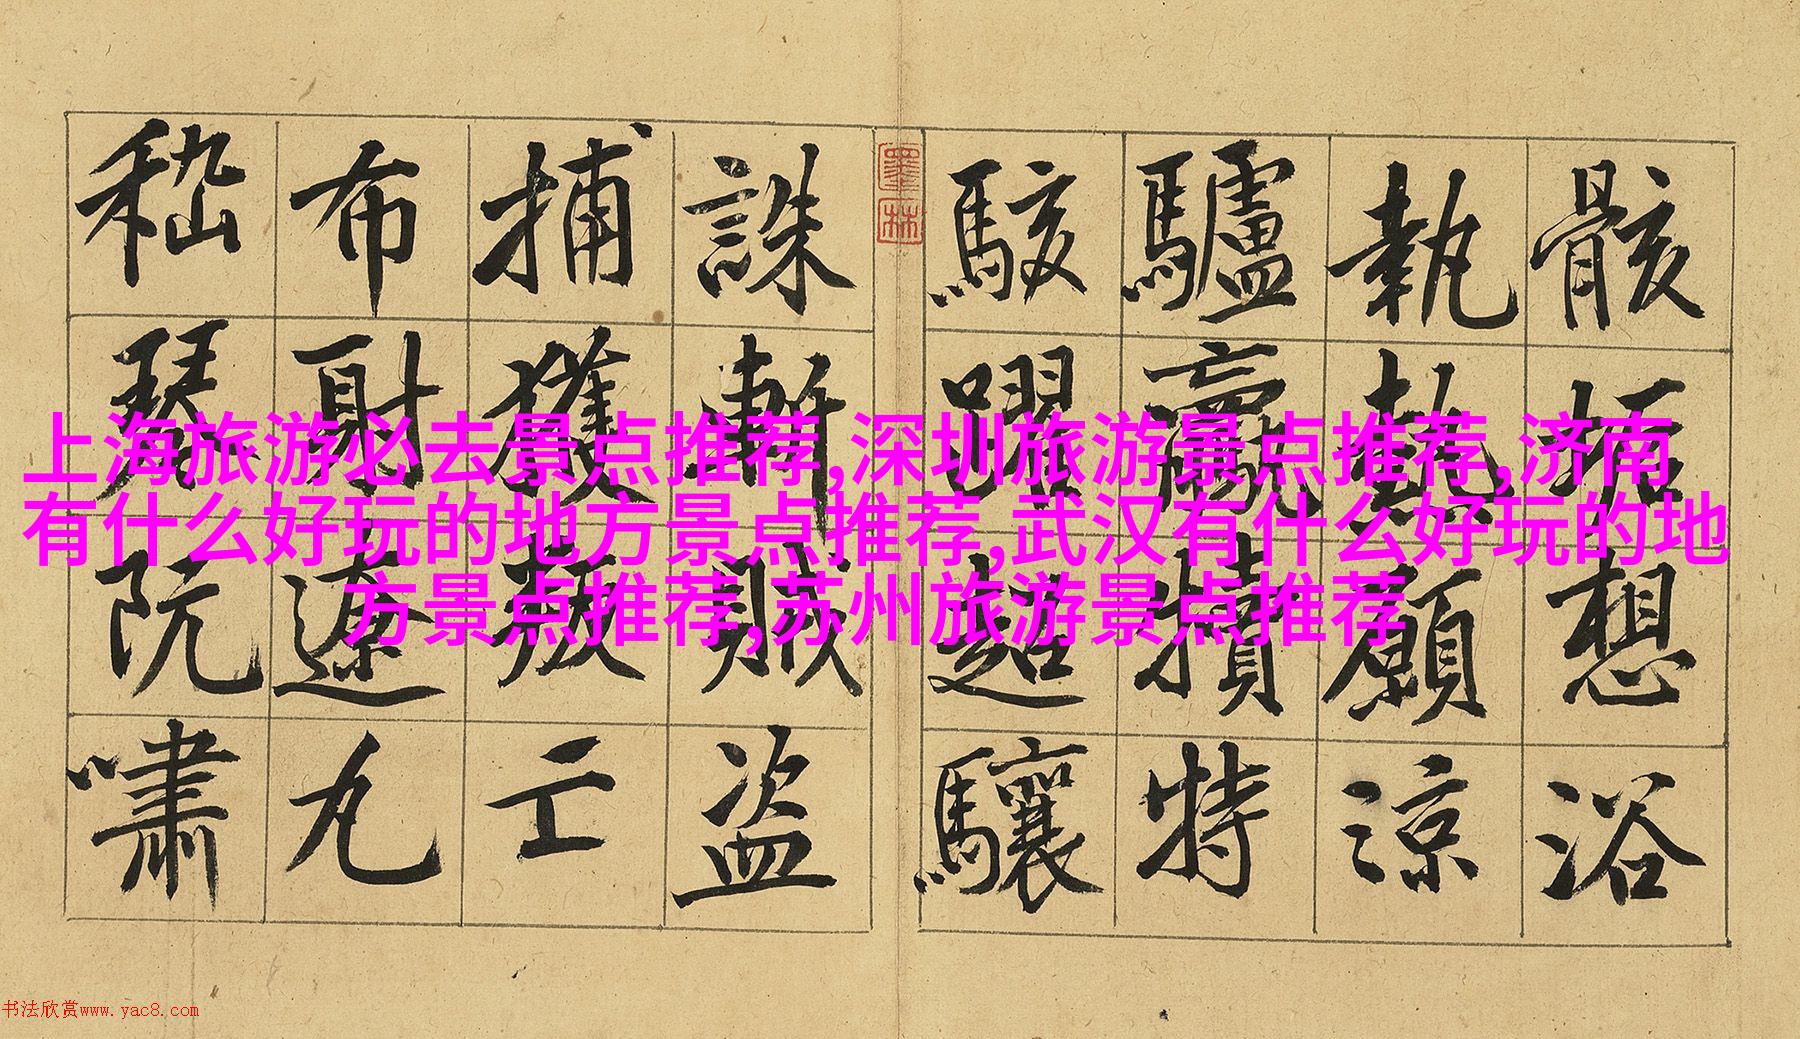 骸垢想浴
執熱願涼
驢騾犢特
駭躍超驤
誅斬賊盗
捕獲叛亡
布射遼丸
嵇琴阮嘯
墨林
上海旅游必去景点推荐,深圳旅游景点推荐,济南
有什么好玩的地方景点推荐,武汉有什么好玩的地
方景点推荐,苏州旅游景点推荐
书法欣赏www.yac8.com